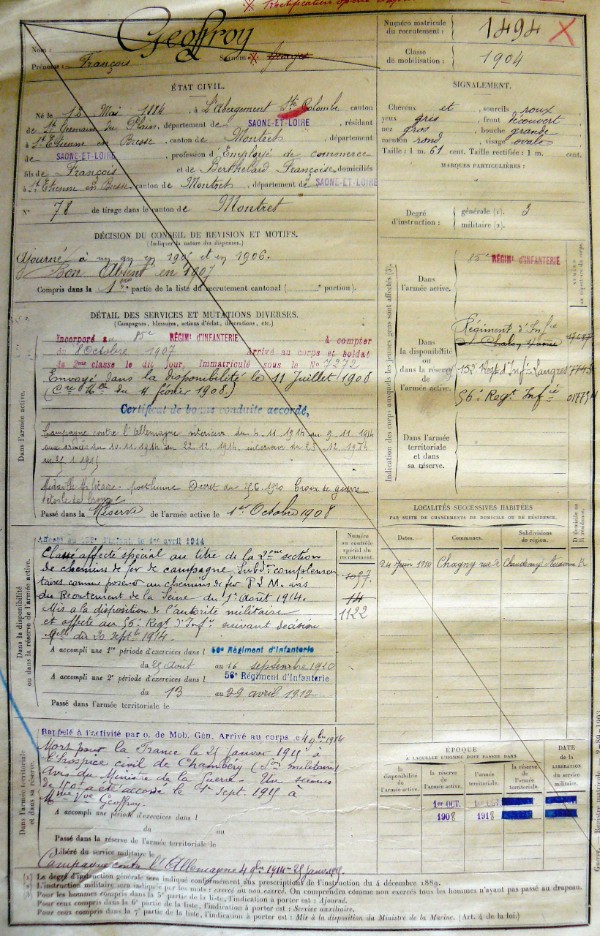 Nom : Geoffroy
Prénoms : François Surnom :
Numéro matricule
du recrutement : 1494
Classe
de mobilisation : 1904
ÉTAT CIVIL.
Né le 12 Mai 1884, à L'Abergement Ste Colombe canton
de St Germain du Plain, département de SAONE-ET-LOIRE, résidant
à St Etienne en Bresse, canton de Montret, département
de SAONE-ET-LOIRE, profession d'Employé de commerce
fils de François et de Berthelard Françoise, domiciliés
à St Etienne en Bresse canton de Montret, département de SAONE-ET-LOIRE
N° 78 de tirage dans le canton de Montret
SIGNALEMENT.
Cheveux et sourcils roux
yeux gris front découvert
nez gros bouche grande
menton rond visage ovale
Taille : 1 m. 61 cent. Taille rectifiée : 1 m. cent.
MARQUES PARTICULIÈRES :
Degré
d'instruction : générale (1). 3
militaire (2).
DÉCISION DU CONSEIL DE REVISION ET MOTIFS.
(Indiquer la nature des dispenses.)
Ajourné à un an en 1905 et en 1906.
Bon Absent en 1907
Compris dans la 1ère partie de la liste du recrutement cantonal ( portion).
DÉTAIL DES SERVICES ET MUTATIONS DIVERSES.
(Campagnes, blessures, actions d'éclat, décorations, etc.)
Incorporé au 85e RÉGIMt D'INFANTERIE A compter
du 8 Octobre 1907 Arrivé au corps et soldat
de 2ème classe le dit jour. Immatriculé sous le No 7272
Envoyé dans la disponibilité le 11 Juillet 1908
février 1908.)
Certificat de bonne conduite accordé,
Campagne contre l'Allemagne intérieur du 4.11.1914 au 9.11.1914
aux armées du 10.11.1914 au 22.12.1914, intérieur du 23.12.1914
au 25.1.1915
Médaille militaire posthume Décret du Croix de guerre
étoile de bronze
Passé dans la Réserve de l'armée active le 1er Octobre 1908
Dans l'armée active.
Indication des corps auxquels les jeunes gens sont affectés (3).
Dans
l'armée active.
85e RÉGIMt D'INFANTERIE
Dans
la disponibilité
ou dans
la réserve de
l'armée active.
Régiment d'Infie
de Chalon s/ Saône
Regt d'Infie Langres
56e Regt Infie
Dans l'armée
territoriale
et dans
sa réserve.
LOCALITÉS SUCCESSIVES HABITÉES
PAR SUITE DE CHANGEMENTS DE DOMICILE OU DE RÉSIDENCE.
Dates. Communes. Subdivisions de région.
1910 Chagny rue de R
le 1er avril 1914
Classé affecté spécial au titre de la 2ème section
de chemins de fer de campagne, subdon complémen
taires comme poseur au chemins de fer P.L.M. avis
du Recrutement de la Seine du 1er août 1914.
Mis à la disposition de l'autorité militaire
et affecté au 56e Regt d'Infie suivant décision
du 30 septbre 1914.
Numéro au contrôle spécial du recrutement.
1122
Dans la disponibilité ou dans la réserve de l'armée active.
A accompli une 1re période d'exercices dans le 56e Régiment d'Infanterie
du 25 août au 16 septembre 1910
A accompli une 2e période d'exercices dans le 56e Régiment d'Infanterie
du 13 au 29 avril 1912
Passé dans l'armée territoriale le
Rappelé à l'activité par o. de Mob. Gén. Arrivé au corps le 4 9bre 1914
Mort pour la France le 25 janvier 1915 à
l'hospice civil de Chambéry
Avis du Ministre de la Guerre. Un secours
de 150 f a été accordé le 1er Sept. 1915 à
Mme Vve Geoffroy.
A accompli une période d'exercices dans
du au
Passé dans la réserve de l'armée territoriale le
Libéré du service militaire le
Campagne contre l'Allemagne 4 9bre 1914 - 25 janv. 1915.
Dans l'armée territoriale et dans sa réserve.
ÉPOQUE
A LAQUELLE L'HOMME DOIT PASSER DANS
la disponibilité de l'armée active.
la réserve de l'armée active.
l'armée territoriale.
la réserve de l'armée territoriale.
DATE DE LA LIBÉRATION du service militaire.
1er OCT. 1908
1er OCT. 1918
(1) Le degré d'instruction générale sera indiqué conformément aux prescriptions de l'instruction du 4 décembre 1889.
(2) L'instruction militaire sera indiquée par les mots : exercé ou non exercé. On comprendra comme non exercés tous les hommes n'ayant pas passé au drapeau.
(3) Pour les hommes compris dans la 5e partie de la liste, l'indication à porter est : Ajourné.
Pour ceux compris dans la 6e partie de la liste, l'indication à porter est : Service auxiliaire.
Pour ceux compris dans la 7e partie de la liste, l'indication à porter est : Mis à la disposition du Ministre de la Marine. (Art. 4 de la loi.)